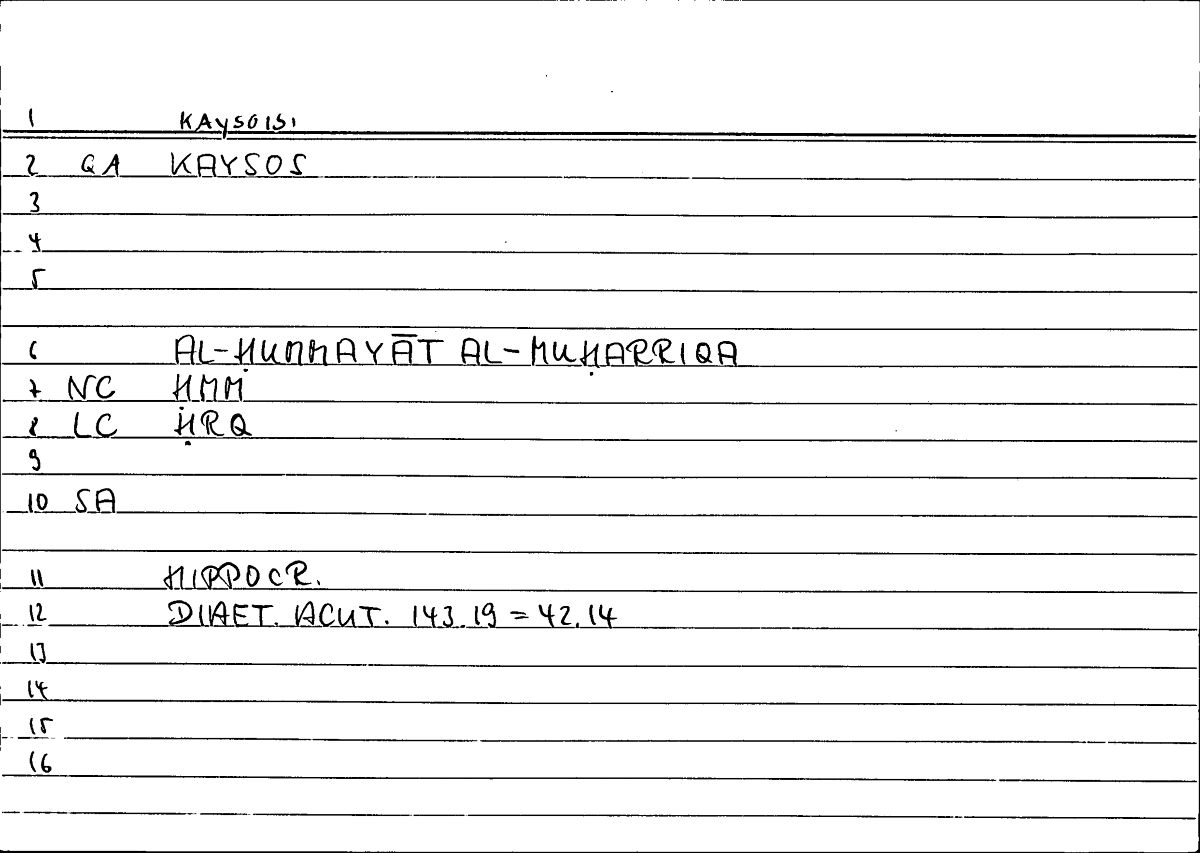 1 KAYSOISI
2 QA KAYSOS
3
4
5
6 AL-ḤUMMAYĀT AL-MUḤARRIQA
7 NC ḤMM
8 LC ḤRQ
9
10 SA
11 HIPPOCR.
12 DIAET. ACUT. 143.19 = 42.14
13
14
15
16